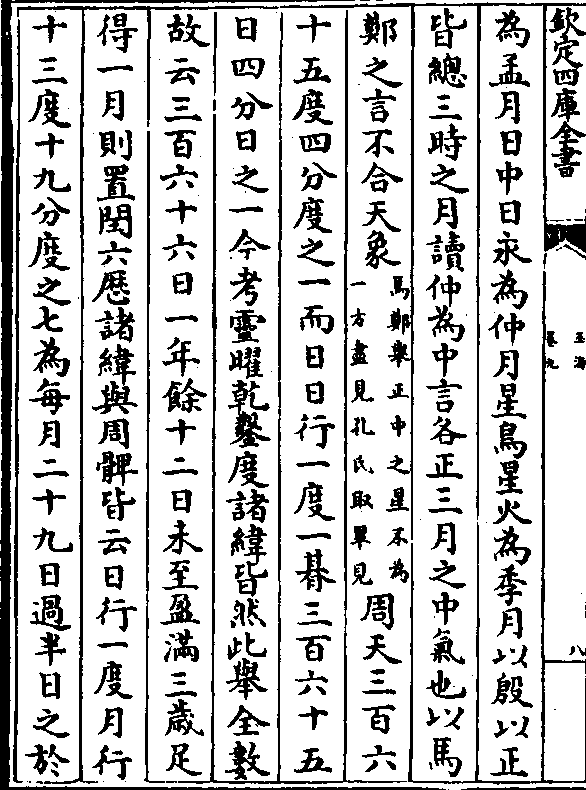 欽定四庫全書
玉海
卷九
八
為孟月日中日永為仲月星鳥星火為季月以殷以正
皆總三時之月讀仲為中言各正三月之中氣也以馬
鄭之言不合天象
馬鄭舉正中之星不為
一方盡見孔氏取畢見
周天三百六
十五度四分度之一而日日行一度一朞三百六十五
日四分日之一今考靈曜乾鑿度諸緯皆然此舉全數
故云三百六十六日一年餘十二日未至盈滿三歲足
得一月則置閏六厯諸緯與周髀皆云日行一度月行
十三度十九分度之七為每月二十九日過半日之於